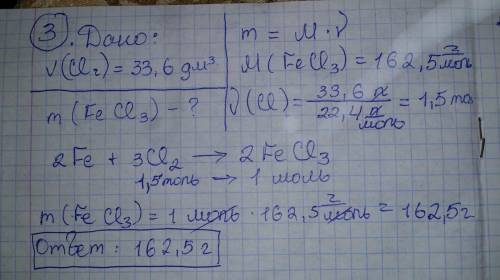 3. Дано:
V(Cl₂) = 33,6 дм³
m(FeCl₃) - ?
m = M · ν
M(FeCl₃) = 162,5 г/моль
ν(Cl) = 33,6 л / 22,4 л/моль = 1,5 моль
2Fe + 3Cl₂ → 2FeCl₃
1,5 моль → 1 моль
m(FeCl₃) = 1 моль · 162,5 г/моль = 162,5 г
Ответ: 162,5 г